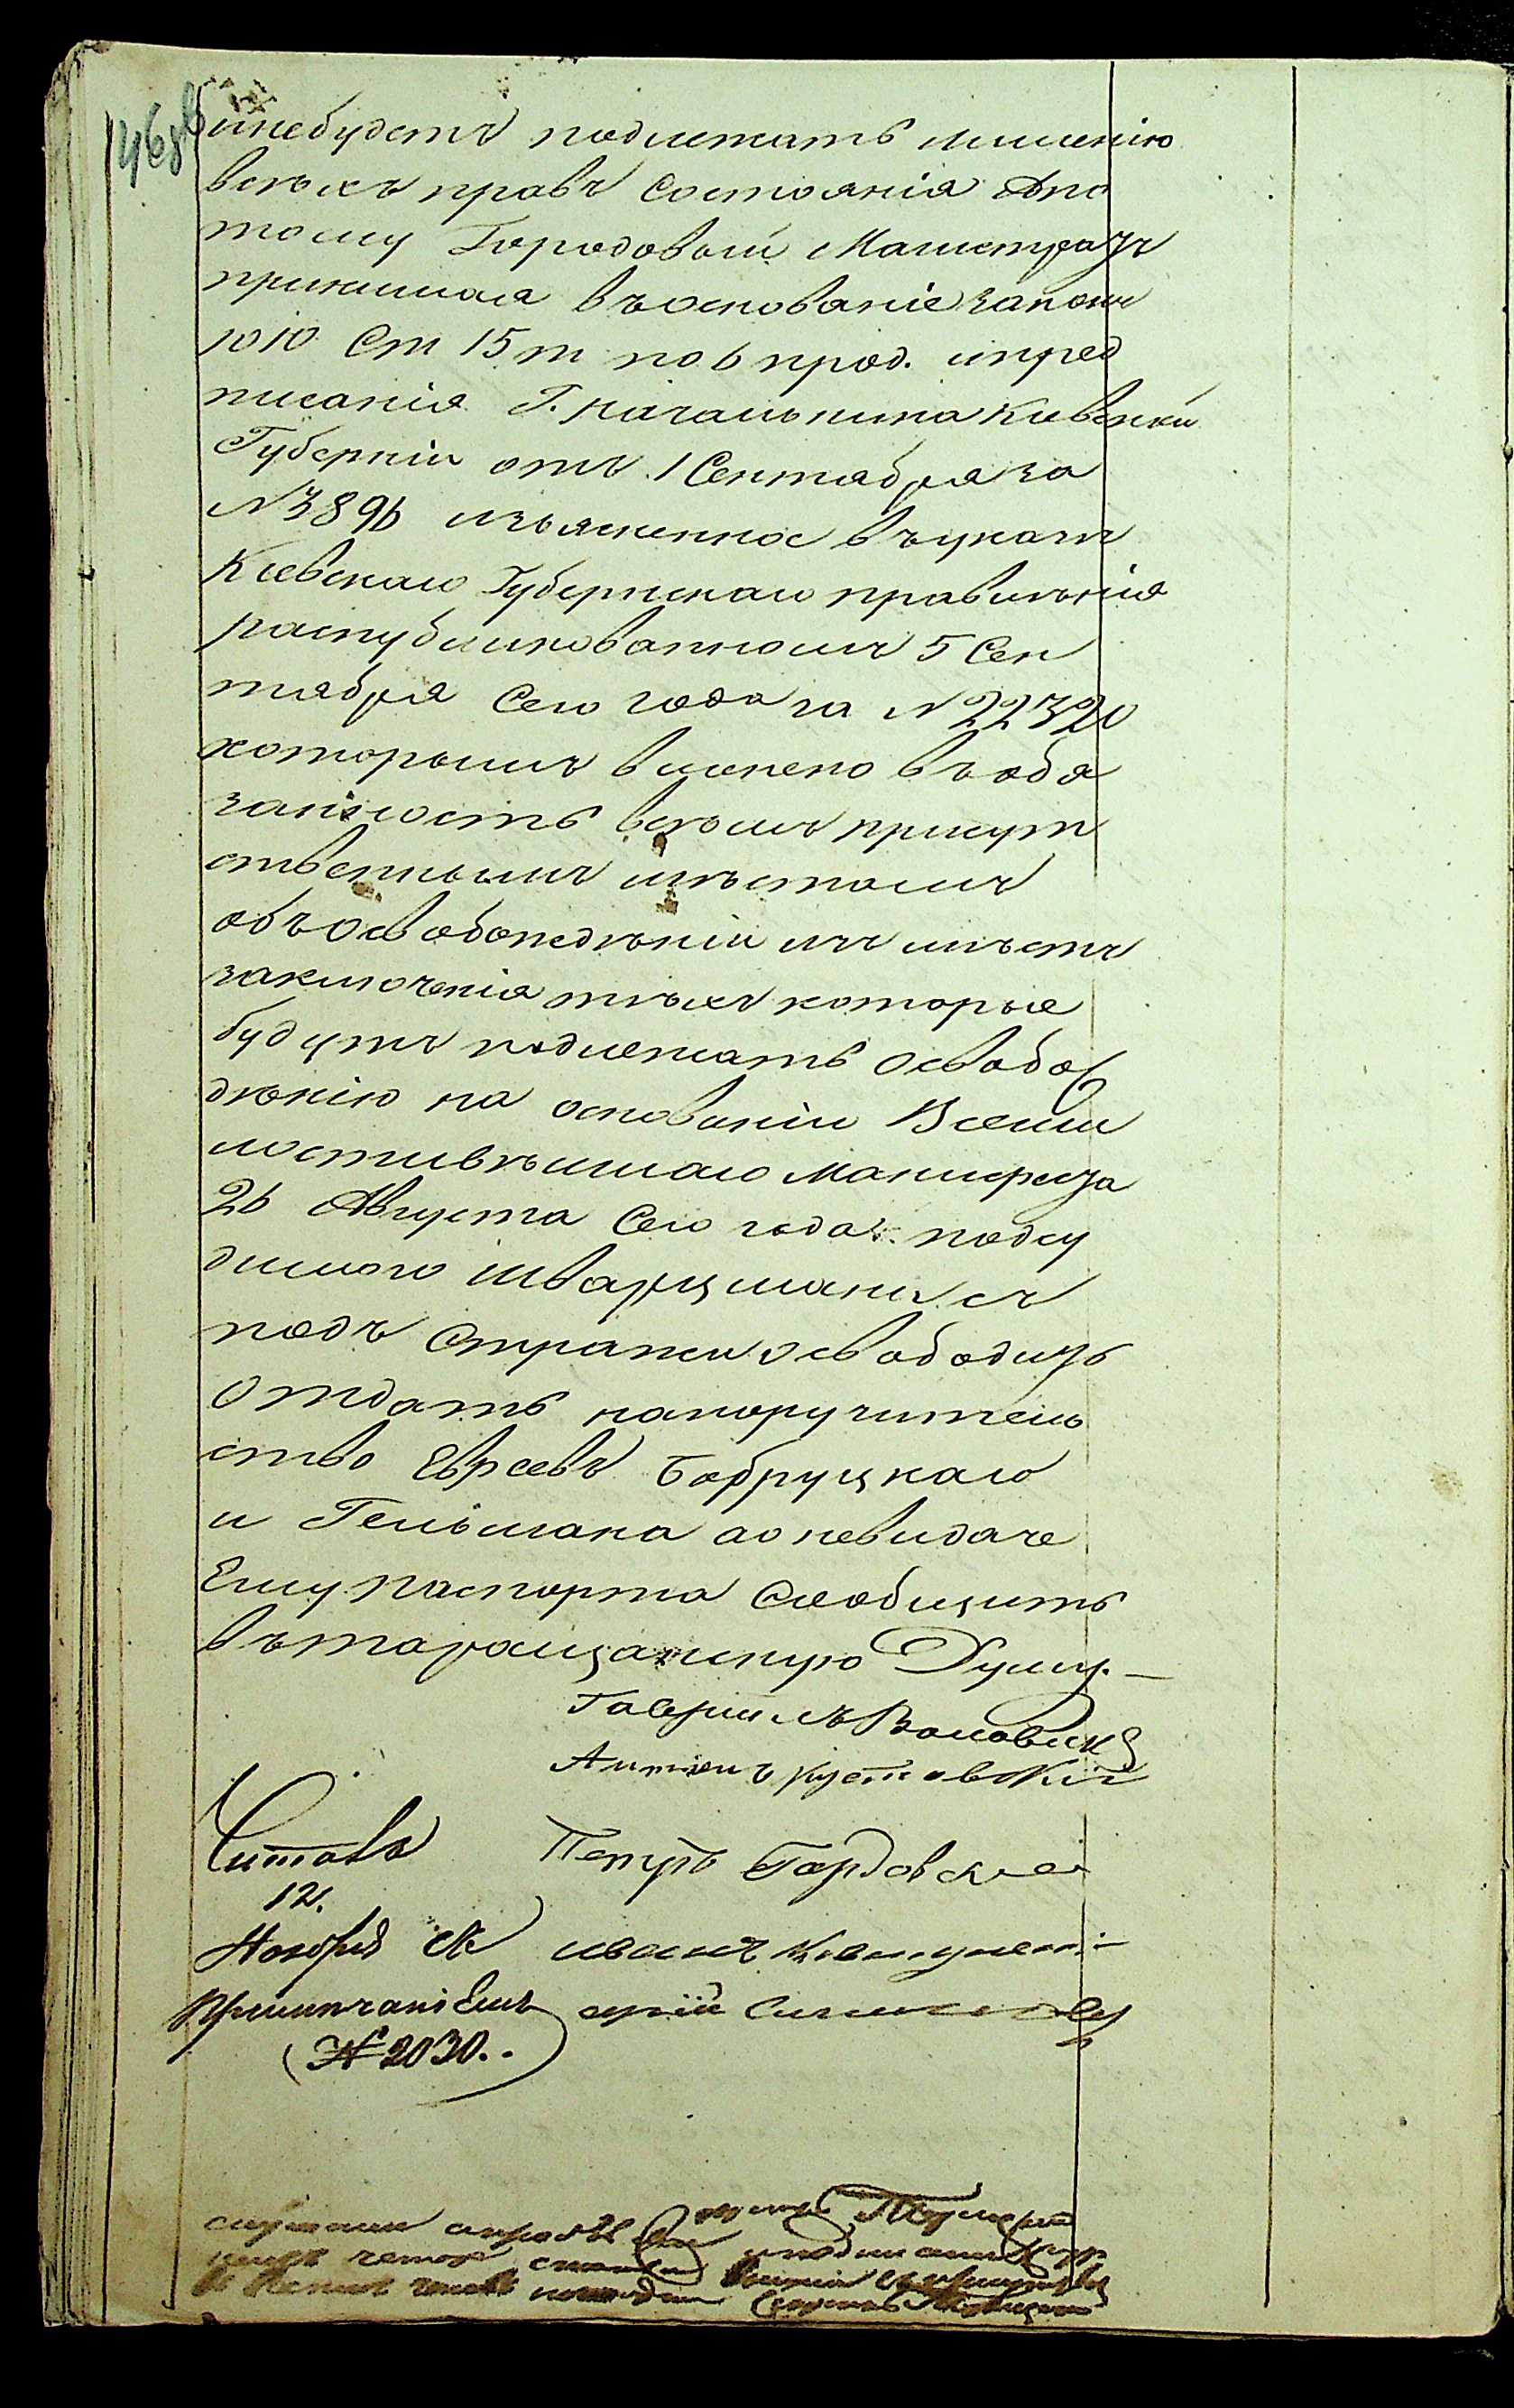 468 об
инебудетъ подлежатъ лишенію
всѣхъ правъ Состоянія Апо
тому Городовый Магистратъ
принимая въоснованіе законы
1010 Ст 15 т по 6 прод. ипред
писанія Г. Начальника Киевской
Губерніи отъ 1 Сентября за
№ 3896 изъясненное въуказѣ
Киевскаго Губернскаго правилѣнія
распубликованномъ 5 Сен
тября Сего года за № 22320
которымъ вменено въобя
занность всѣмъ присут
ственнымъ мѣстамъ
объосвобожедѣніи изъ мѣстъ
заключенія тѣхъ которые
будутъ подлежатъ освобо
дѣнію на основаніи Всеми
лостивѣйшаго Манифеста
26 Августа Сего года. подсу
димого Шварцмана съ
подъ Стражи освободить
отдать напоручитель
ство Евреевъ Бобруцкаго
и Гельмана аоневидаче
Ему паспорта Сообщить
въ таращанскую Думу. —
Гавриилъ
Антонъ
Читалъ Петръ Гордовскій
12.
Ноября иванъ
№ 2030..